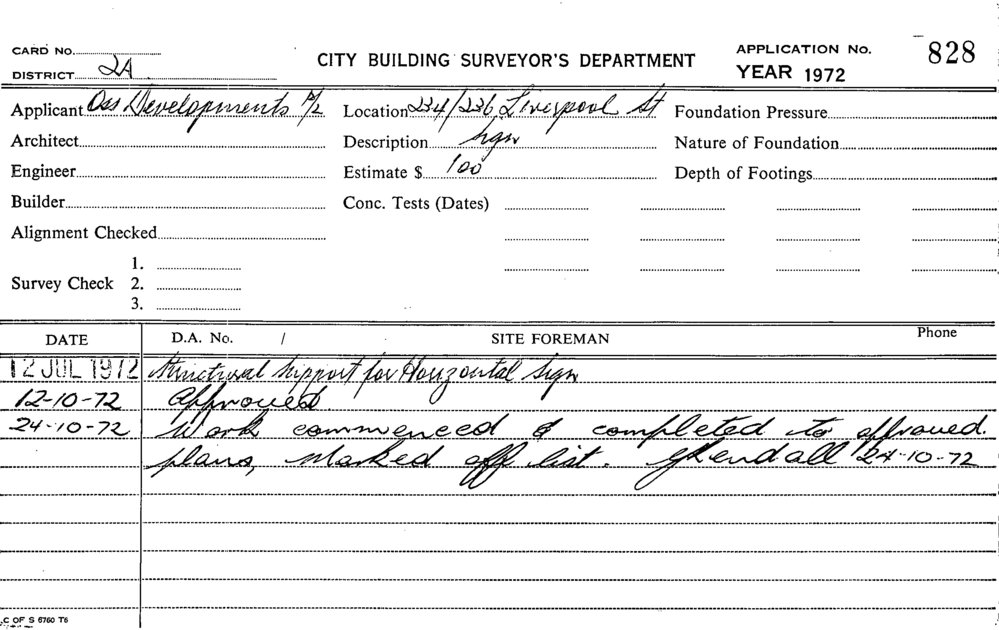 CARD No.
DISTRICT 2A
CITY BUILDING SURVEYOR'S DEPARTMENT
APPLICATION No. 828
YEAR 1972
Applicant Oss Developments P/L Location 234/236 Liverpool St Foundation Pressure
Architect Description Sign Nature of Foundation
Engineer Estimate $ 100 Depth of Footings
Builder Conc. Tests (Dates)
Alignment Checked
1.
Survey Check 2.
3.
DATE D.A. No. / SITE FOREMAN Phone
12 JUL 1972 Structural Support for Horizontal Sign
12-10-72 Approved
24-10-72 Work commenced & completed to approved
plans, Marked off list. GKendall 24-10-72
C OF S 6760 T6